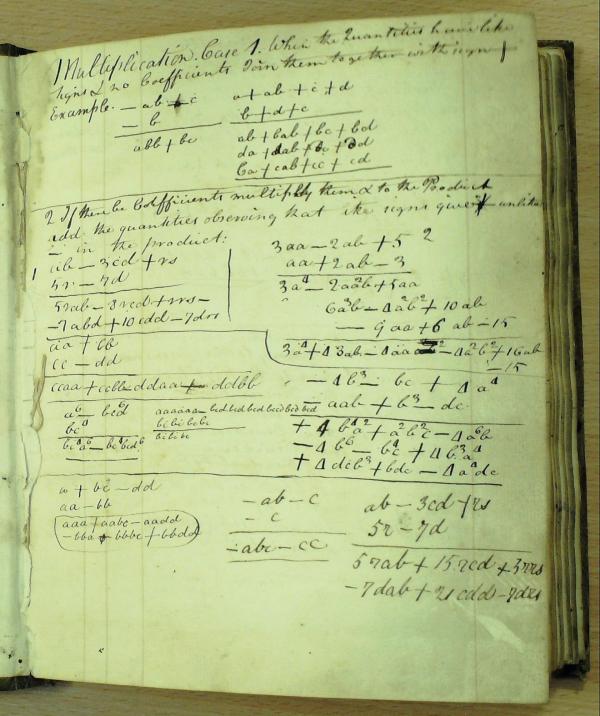 Multiplication. Case 1. When the Quantities have like
signs & no Coefficients Join them together with sign +
Example. - ab + c
- b
abb + bc
a + ab + c + d
b + d + c
ab + bab + bc + bd
da + dab + dc + dd
ca + cab + cc + cd
2 If there be Coefficients multiply them & to the Product
add the quantities observing that like signs give + unlike
- in the product:
ab - 3cd + rs
5r - 7d
5rab - rcd + rrs -
- 7abd + 10cdd - 7drs
3aa - 2ab + 5
aa + 2ab - 3
3a⁴ - 2a²b + 5aa
6a³b - 4a²b² + 10ab
- 9aa + 6ab - 15
3a⁴ + 4a³b - 4aa - 4a²b² + 16ab
- 15
aa + bb
cc - dd
ccaa + ccbb - ddaa - ddbb
a⁶ - bcd⁶
bc⁴
bc⁴a⁶ - bc⁴bcd⁶
aaaaaa - bcd bcd bcd bcd bcd bcd
bc bc bc bc
- 4b³ - bc + 4a⁴
- aab + b³ - dc
+ 4b⁴a² + a²b²c - 4a⁶b
- 4b⁶ - b⁴c + 4b³a⁴
+ 4dcb³ + bdc - 4a⁴dc
a + bc - dd
aa - bb
aaa + aabc - aadd
- bba + bbbc + bbdd
- ab - c
- c
- abc - cc
ab - 3cd + rs
5r - 7d
5rab + 15rcd + 5rrs
- 7dab + 21cdd - 7drs